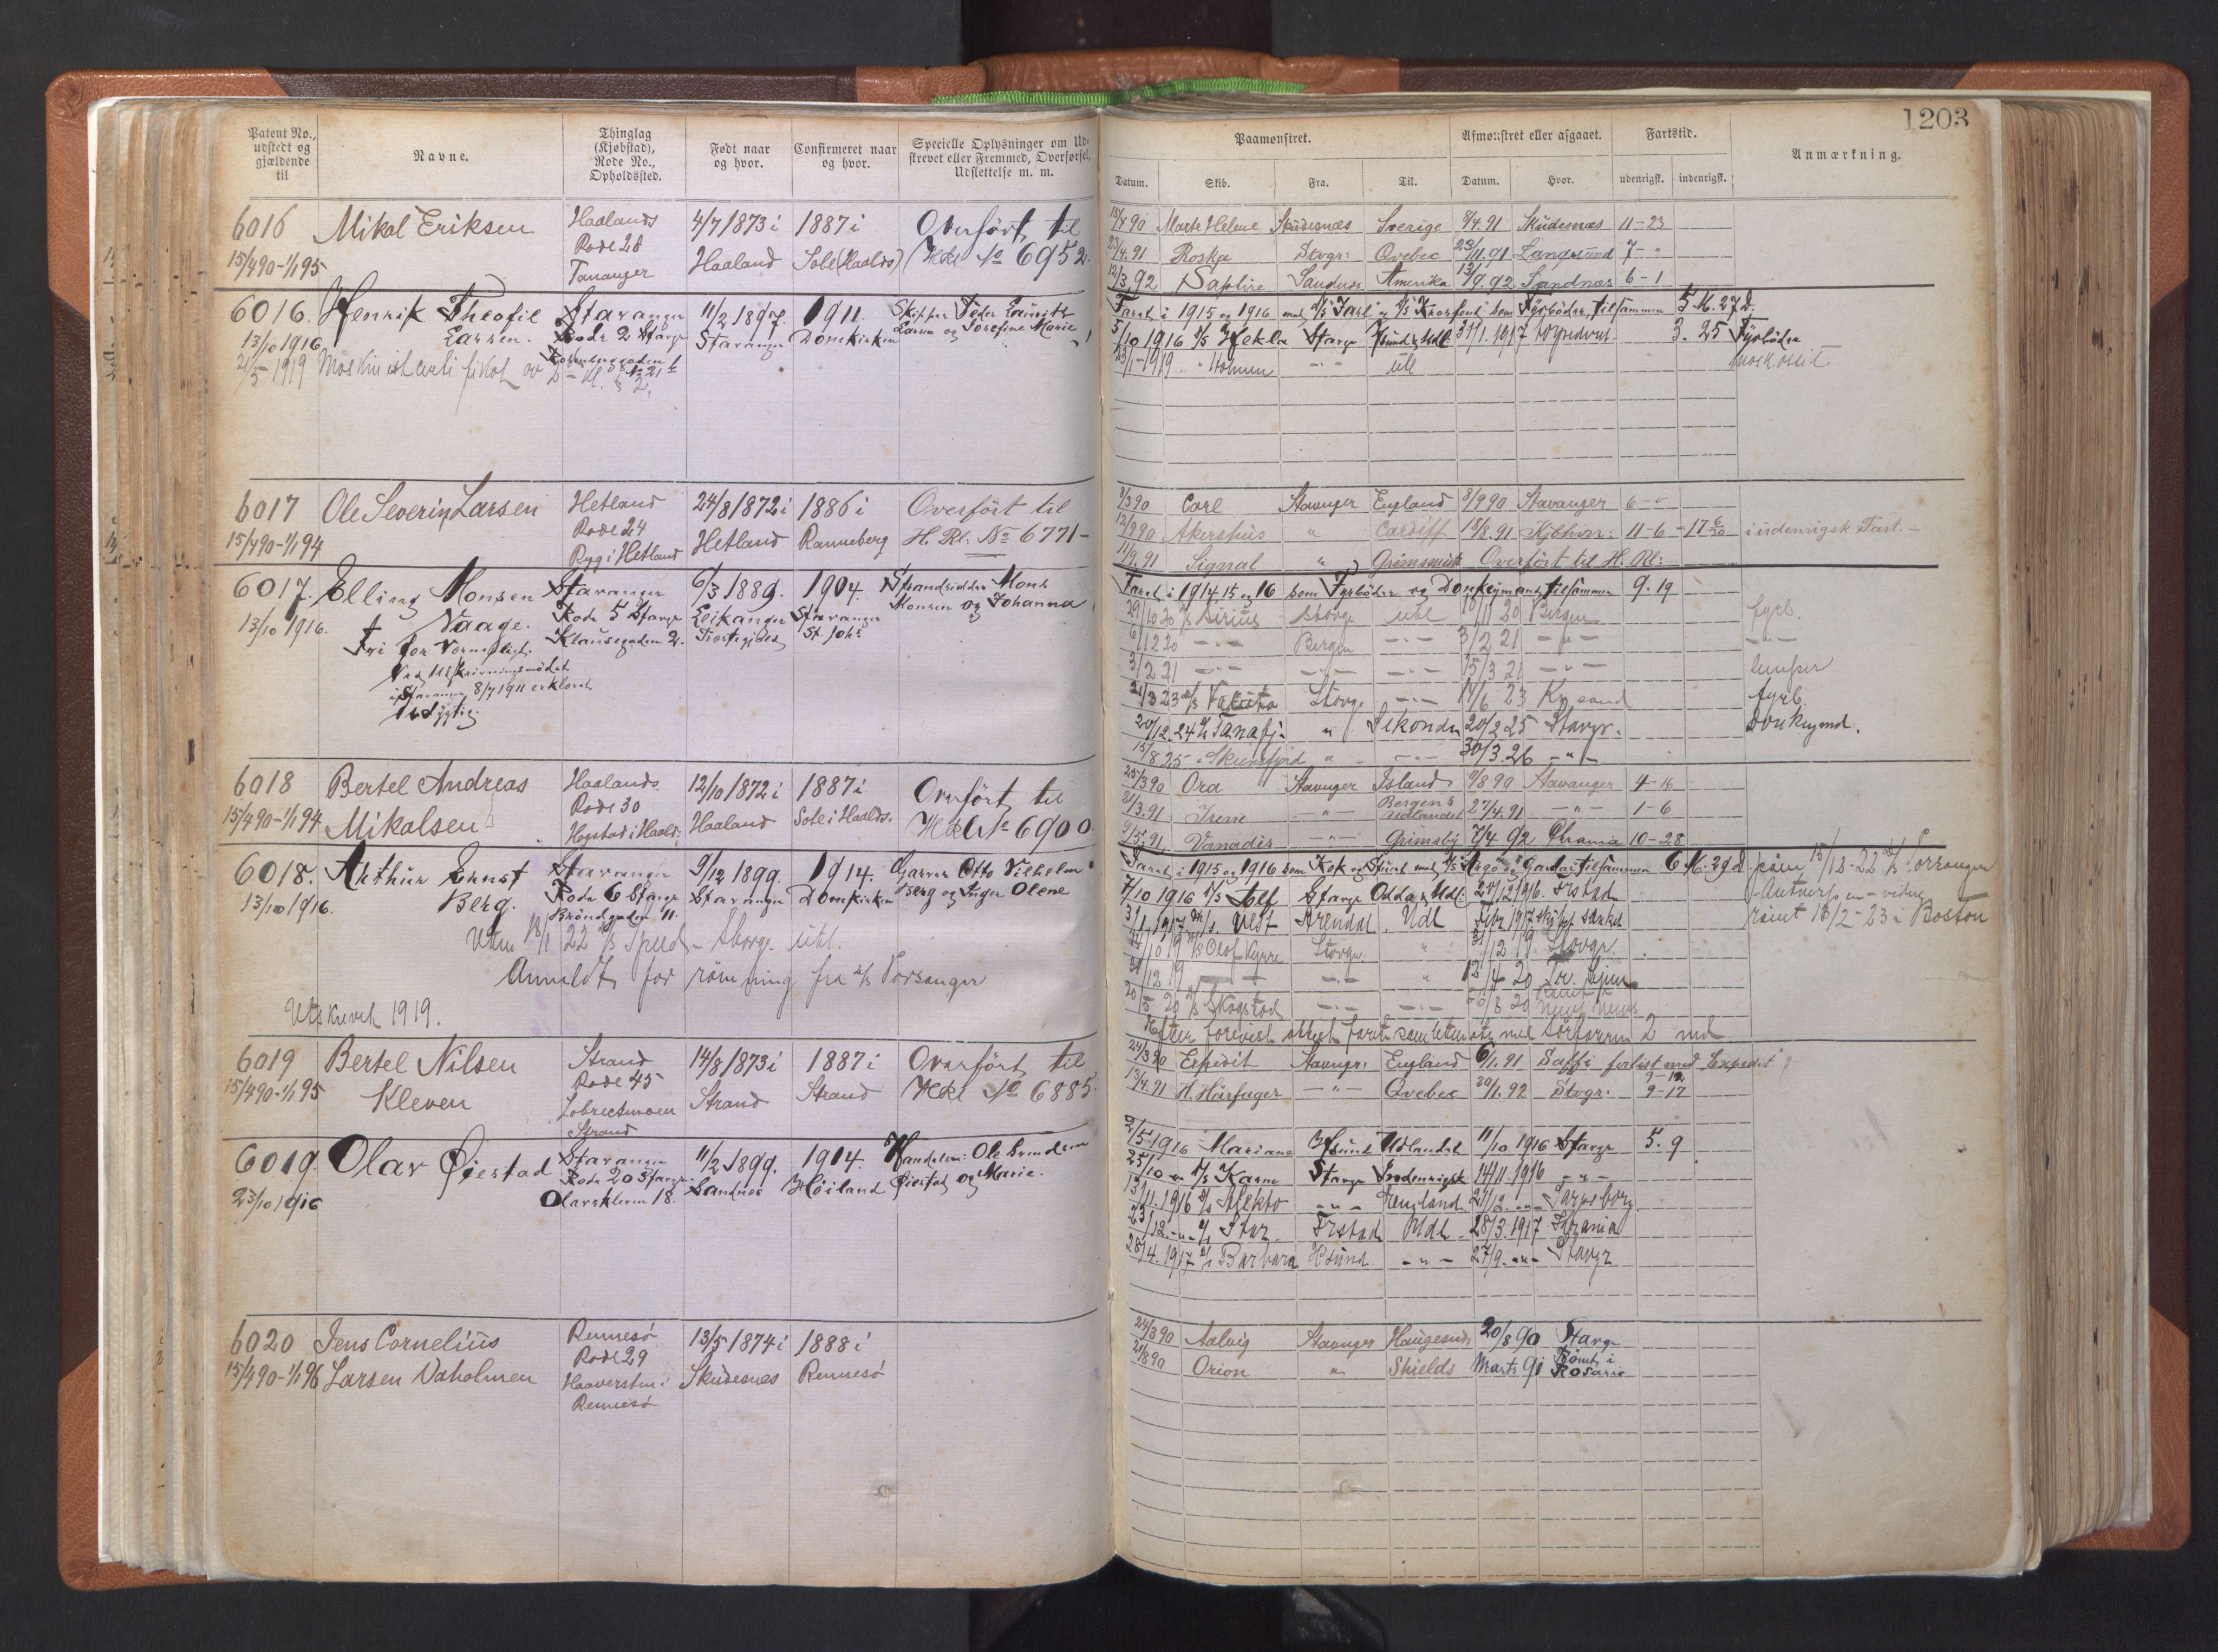 1203
Patent No., udstedt og gjældende til
Navne.
Thinglag (Kjøbstad), Rode No., Opholdssted.
Født naar og hvor.
Confirmeret naar og hvor.
Specielle Oplysninger om Udskrevet eller Fremmed, Overførsel, Udslettelse m. m.
Paamønstret.
Afmønstret eller afgaaet.
Fartstid.
Anmærkning.
Datum. Skib. Fra. Til. Datum. Hvor. udenrigsk. indenrigsk.
6016 Mikal Eriksen Haalands 4/7 1873 i 1887 i Overført til
15/4 90 - 1/1 95 Rode 28 Haaland Sole (Haalds) Hkl No 6952
Tananger
15/4 90 Marte Helene Skudesnæs Sverige 8/4. 91 Skudesnæs 11-23
23/4. 91 Roska Stvgr: Qvebec 23/11. 91 Langesund 7- "
12/3. 92 Saphire Sandnæs Amerika 13/9. 92 Sandnæs 6-1
6016. Henrik Theofil Stavanger 11/2 1897. 1911. Skipper Peder Lauritz
13/10 1916. Larsen. Rode 2 Stavgr Stavanger Domkirken Larsen og Josefine Marie
21/5-1919 Maskinist certifikat av
Faret i 1915 og 1916 med D/S Jarl og D/S Kronprins som Fyrbøder, tilsammen 5 M. 27 D.
5/10 1916 D/S Hekla Stavgr Hsund & Udl. 1917 3. 25 Fyrbøder
utl
6017 Ole Severin Larsen Hetland 24/8 1872 i 1886 i Overført til
15/4 90 - 1/1 94 Rode 24 Hetland Ranneberg H. Rl: No 6771-
Ryg i Hetland
3/3 90 Carl Stavanger England 8/9 90 Stavanger 6-"
12/9 90 Akershus " Cardiff 18/8. 91 Kjøbhvn: 11-6 - i indenrigsk Fart.-
11/9. 91 Signal " Grimsmith Overført til H. Rl:
6017. Elling Monsen Stavanger 6/3 1889. 1904. Strandsidder Mons
13/10 1916. Vaage. Rode 5 Stavgr Leikanger Stavanger Monsen og Johanna
Fri for Værnepligt. Klausegaden 2. St. Johs
Ved Udskrivningsmødet
i Stavanger 8/7 1911 erklæret
Udygtig
Faret i 1914, 15 og 16 som Fyrbøder og Donkeymand, tilsammen 9. 19
29/10 20 D/S Sirius Stvgr utl 20 Bergen fyrb.
6/12 20 -"- Bergen -"- 3/2 21 -"- -"-
3/2 21 -"- -"- -"- 15/3 21 -"- lemper
21/3 23 D/S Stvgr -"- 14/6 23 Kr.sand fyrb.
20/12. 24 D/S Tanafj. " Sekondi 20/2 25 Stavgr. Donkeymd.
15/8 25 Skiensfjord " -"- 30/3. 26 -"-
6018 Bertel Andreas Haalands 12/10 1872 i 1887 i Overført til
15/4 90 - 1/1 94 Mikalsen Rode 30 Haaland Sole i Haalds. Hkl No 6900
Hogstad i Haald:
25/3 90 Ora Stavanger Island 9/8 90 Stavanger 4-16
21/3. 91 Irene -"- Bergen & Udlandet 27/4. 91 -"- 1-6
9/5. 91 Vanadis -"- Grimsby 7/4 92 Chrania 10-28
6018. Arthur Ernst Stavanger 9/12 1899. 1914. Garver Otto Vilhelm
13/10 1916. Berg. Rode 6 Stavgr Stavanger Domkirken Berg og Inger Olene
Brøndgaden 11.
22 D/S Spind - Stvgr. utl.
Anmeldt for rømning fra D/S Porsanger
Utskrevet 1919.
Faret i 1915 og 1916 som Kok og Stuert med D/S Argo og Gardar tilsammen 6 M. 29 D.
7/10 1916 D/S Alf Stavgr Odda & Udl. 1916. Frstad
1917 Vest Arendal Udl Febr 1917 skibet sænket
D/S Olaf Kyrre Stvgr " 19 Stvgr.
20/5 20 D/S Skogstad
rømt 15/12-22 D/S Porsanger
Antwerpen - videre
rømt 13/2-23 i Boston
6019 Bertel Nilsen Strand 14/8 1873 i 1887 i Overført til
15/4 90 - 1/1 95 Kleven Rode 45 Strand Strand Hkl No 6885
Strand
24/3 90 Expedit Stavngr: England 6/1. 91 Saffi forlist med Expedit
13/4. 91 H. Hårfager -"- Qvebec 1. 92 Stvgr: 9-17
6019. Olav Øiestad Stavanger 11/2 1899. 1914. Handelsm: Ole Gundersen
23/10 1916 Rode 20 Stavgr. Sandnes Høiland Øiestad og Marie.
Olavskleven 18.
2/5 1916 Mariane Hsund Udlandet 11/10 1916 Stavgr 5. 9
25/10 " D/S Karm Stavgr Indenrigsk 14/11. 1916 -"-
13/11. 1916 D/S Alekto -"- England 21/12. -"- Sarpsborg
23/12. -"- D/S Star Frstad Udl. 28/3. 1917 Khrania
28/4. 1917 D/S Barbara Hsund -"- 27/9. -"- Stavgr
6020 Jens Cornelius Rennesö 13/5 1874 i 1888 i
15/4 90 - 1/1 96 Larsen Vaholmen Rode 29 Skudesnæs Rennesö
Rennesö
24/3 90 Aalvig Stavanger Haugesund 20/8 90 Stavgr
21/8 90 Orion " Shields Marts 91 Rømt i Rosario